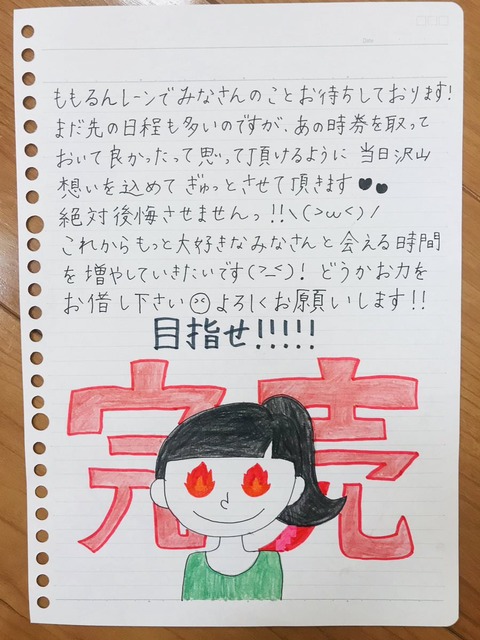 ももるんレーンでみなさんのことお待ちしております!
まだ先の日程も多いのですが、あの時券を取って
おいて良かったって思って頂けるように 当日沢山
想いを込めて ぎゅっとさせて頂きます♥♥
絶対後悔させませんっ!!\(>ω<)/
これからもっと大好きなみなさんと会える時間
を増やしていきたいです(>_<)! どうかお力を
お借し下さい よろしくお願いします!!
目指せ!!!!!
完売